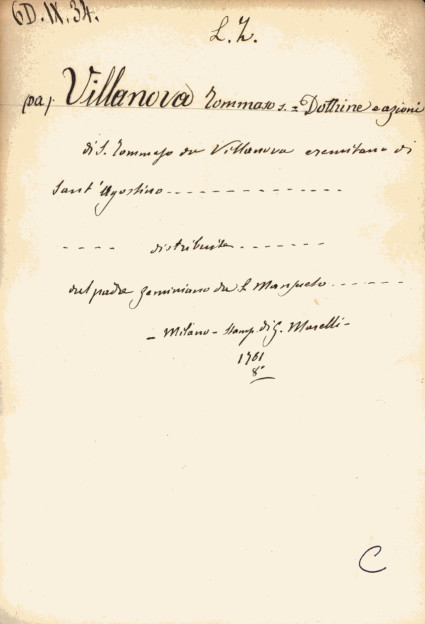 6D.IX.34.
L. Z.
(Da) Villanova Tommaso s. = Dottrine e azioni
di S. Tommaso da Villanova eremitano di
Sant'Agostino - - - - - - - - - - - - - - -
- - - - distribuite - - - - - - -
del padre Geminiano da S. Mansueto - - - - - -
- Milano - Stamp. di G. Marelli -
1761
8°
C